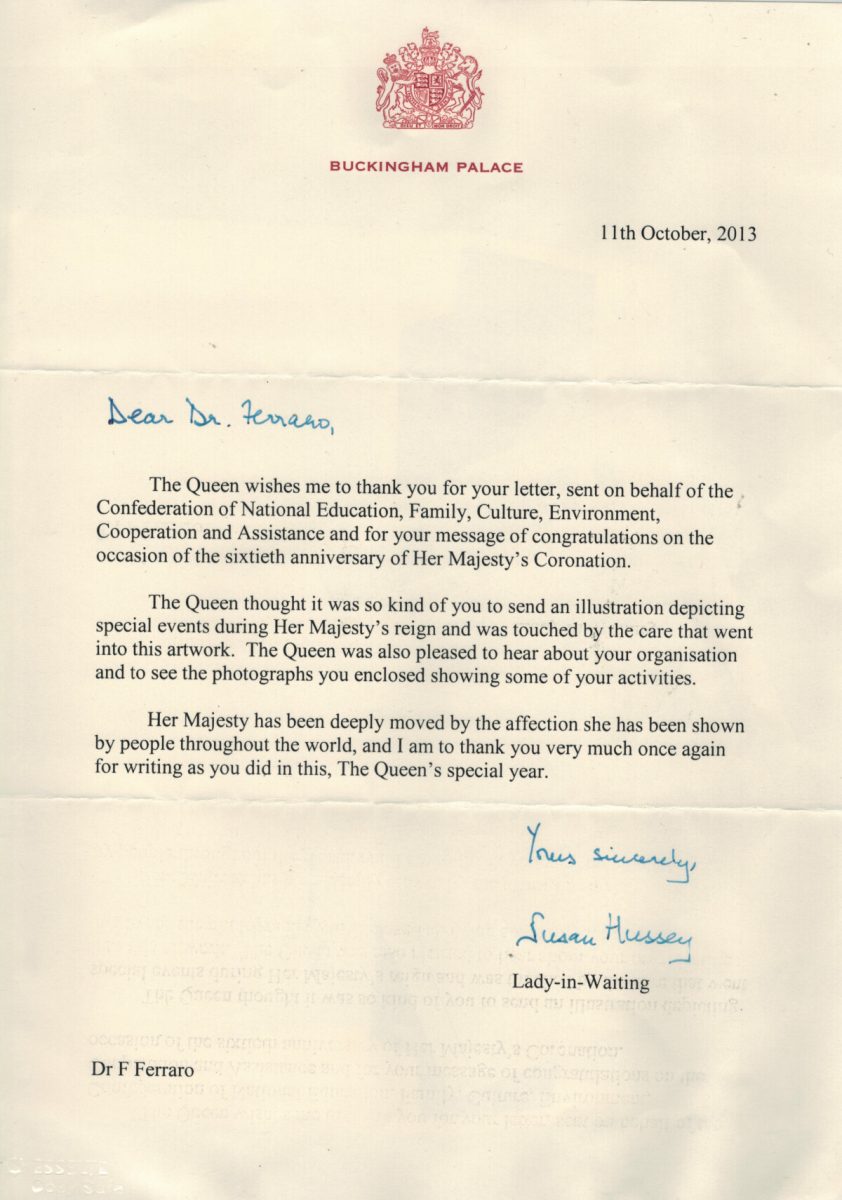 BUCKINGHAM PALACE
11th October, 2013
Dear Dr. Ferraro,
The Queen wishes me to thank you for your letter, sent on behalf of the
Confederation of National Education, Family, Culture, Environment,
Cooperation and Assistance and for your message of congratulations on the
occasion of the sixtieth anniversary of Her Majesty's Coronation.
The Queen thought it was so kind of you to send an illustration depicting
special events during Her Majesty's reign and was touched by the care that went
into this artwork. The Queen was also pleased to hear about your organisation
and to see the photographs you enclosed showing some of your activities.
Her Majesty has been deeply moved by the affection she has been shown
by people throughout the world, and I am to thank you very much once again
for writing as you did in this, The Queen's special year.
Yours sincerely,
Susan Hussey
Lady-in-Waiting
Dr F Ferraro